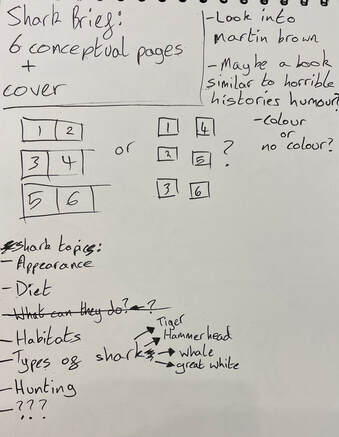 Shark Brief:
6 conceptual pages
+
cover
-Look into
martin brown
-Maybe a book
similar to horrible
histories humour?
-colour
or
no colour?
1 2
3 4
5 6
or
1 4
2 5
3 6
?
shark topics:
-Appearance
-Diet
-What can they do? ?
-Habitats
-Types of sharks
Tiger
Hammerhead
whale
great white
-Hunting
-???